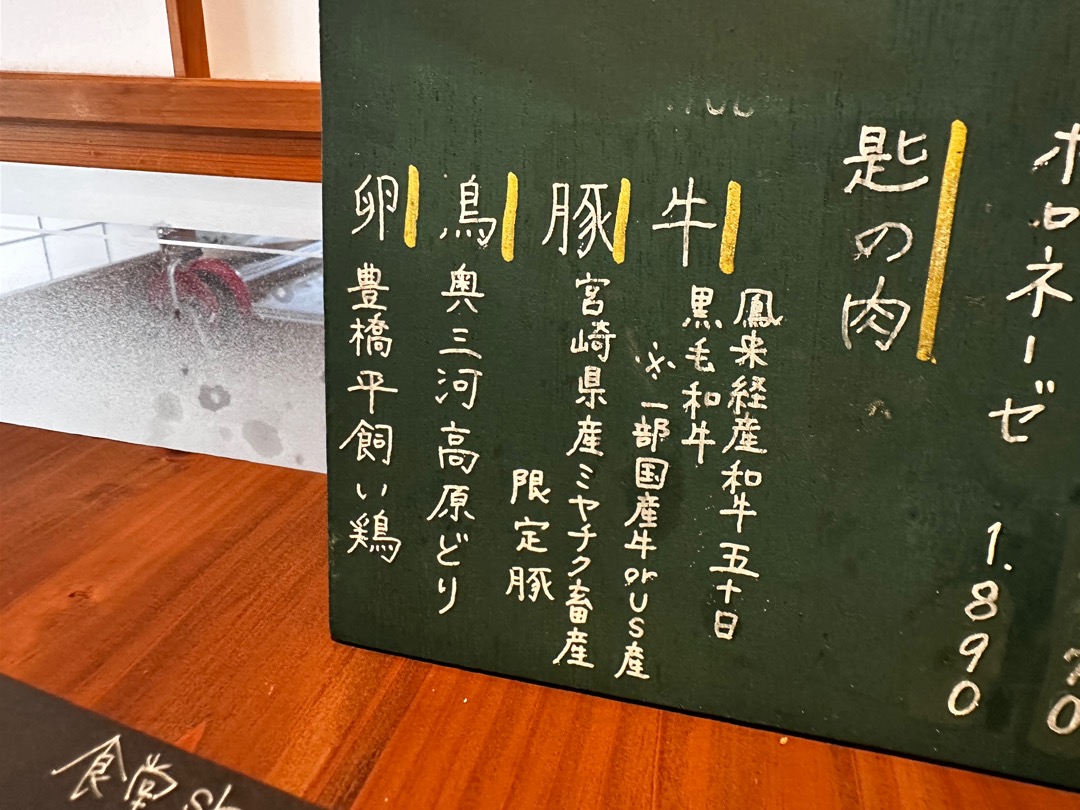 ボロネーゼ
1.890
匙の肉
牛
鳳来経産和牛五十日
黒毛和牛
※一部国産牛orUS産
豚
宮崎県産ミヤチク畜産
限定豚
鳥
奥三河高原どり
卵
豊橋平飼い鶏
食堂